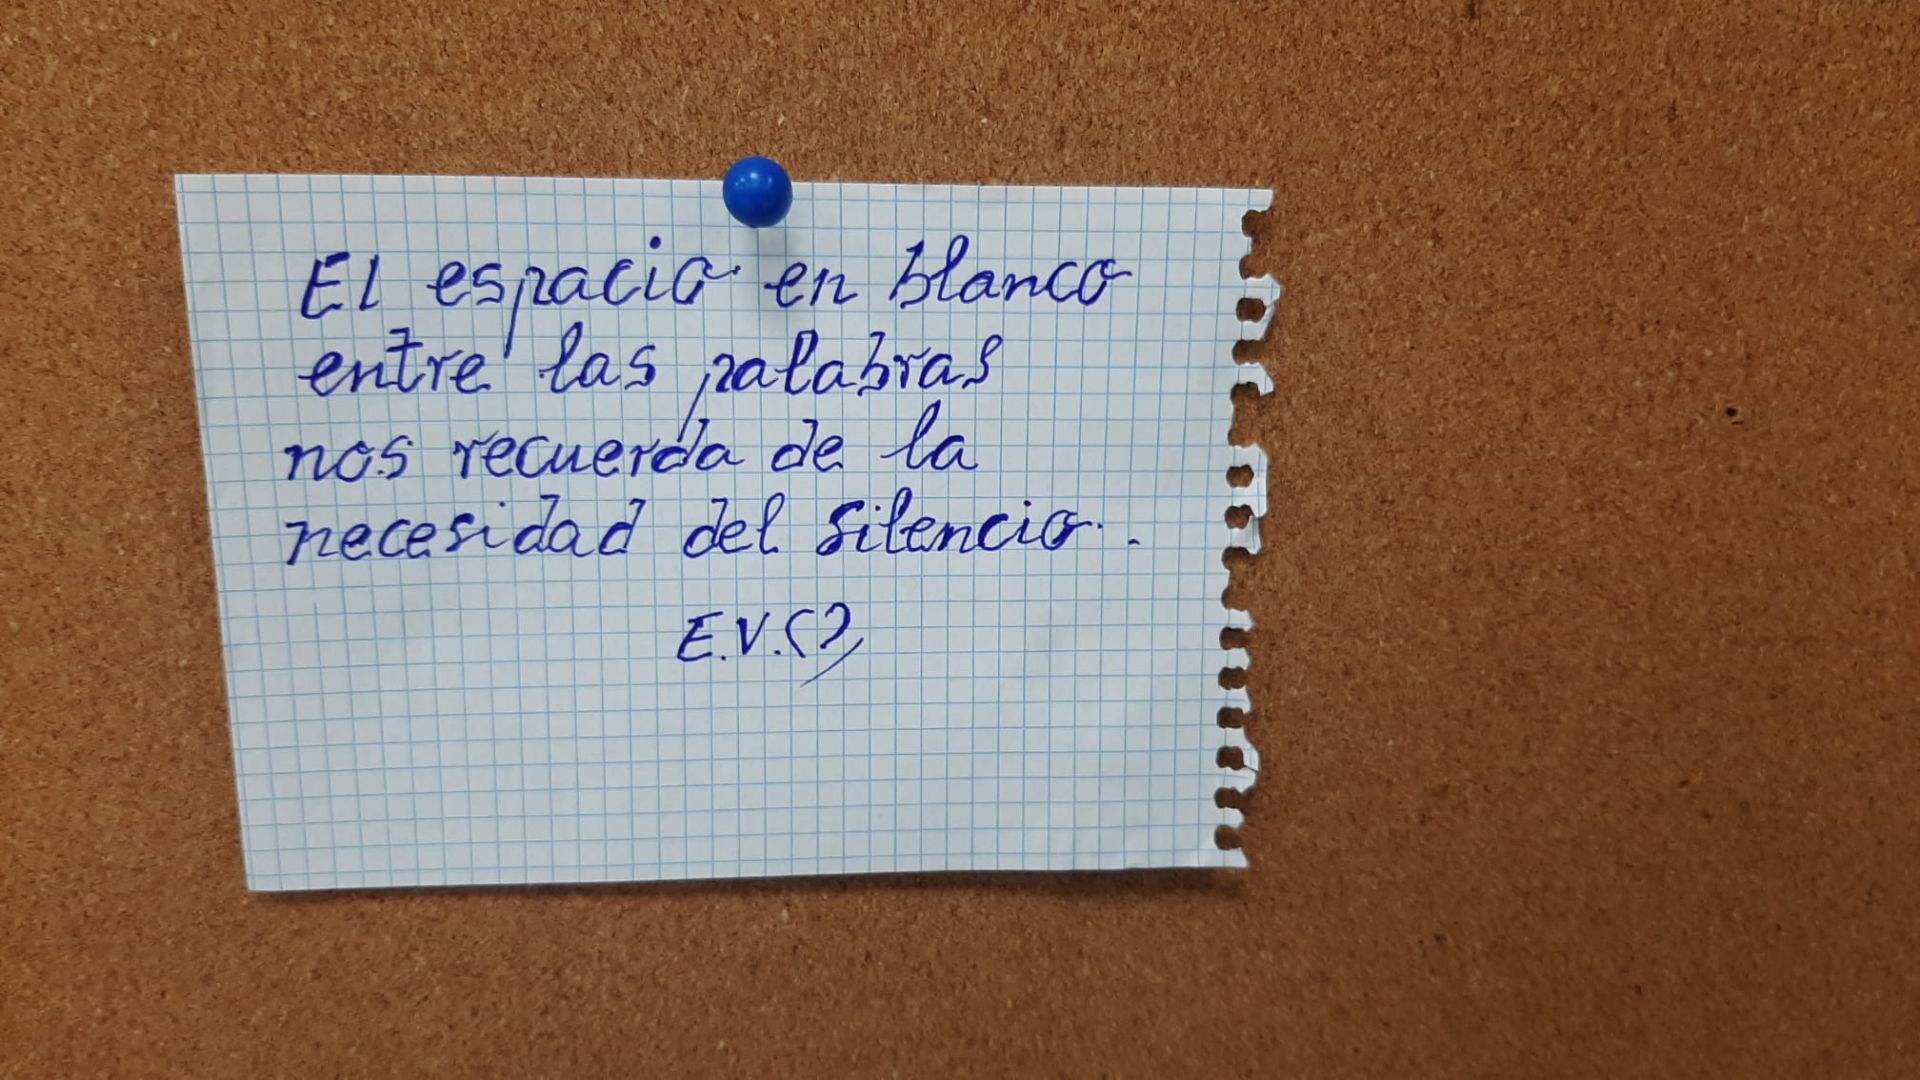 El espacio en blanco
entre las palabras
nos recuerda de la
necesidad del silencio.
E.V.(?)